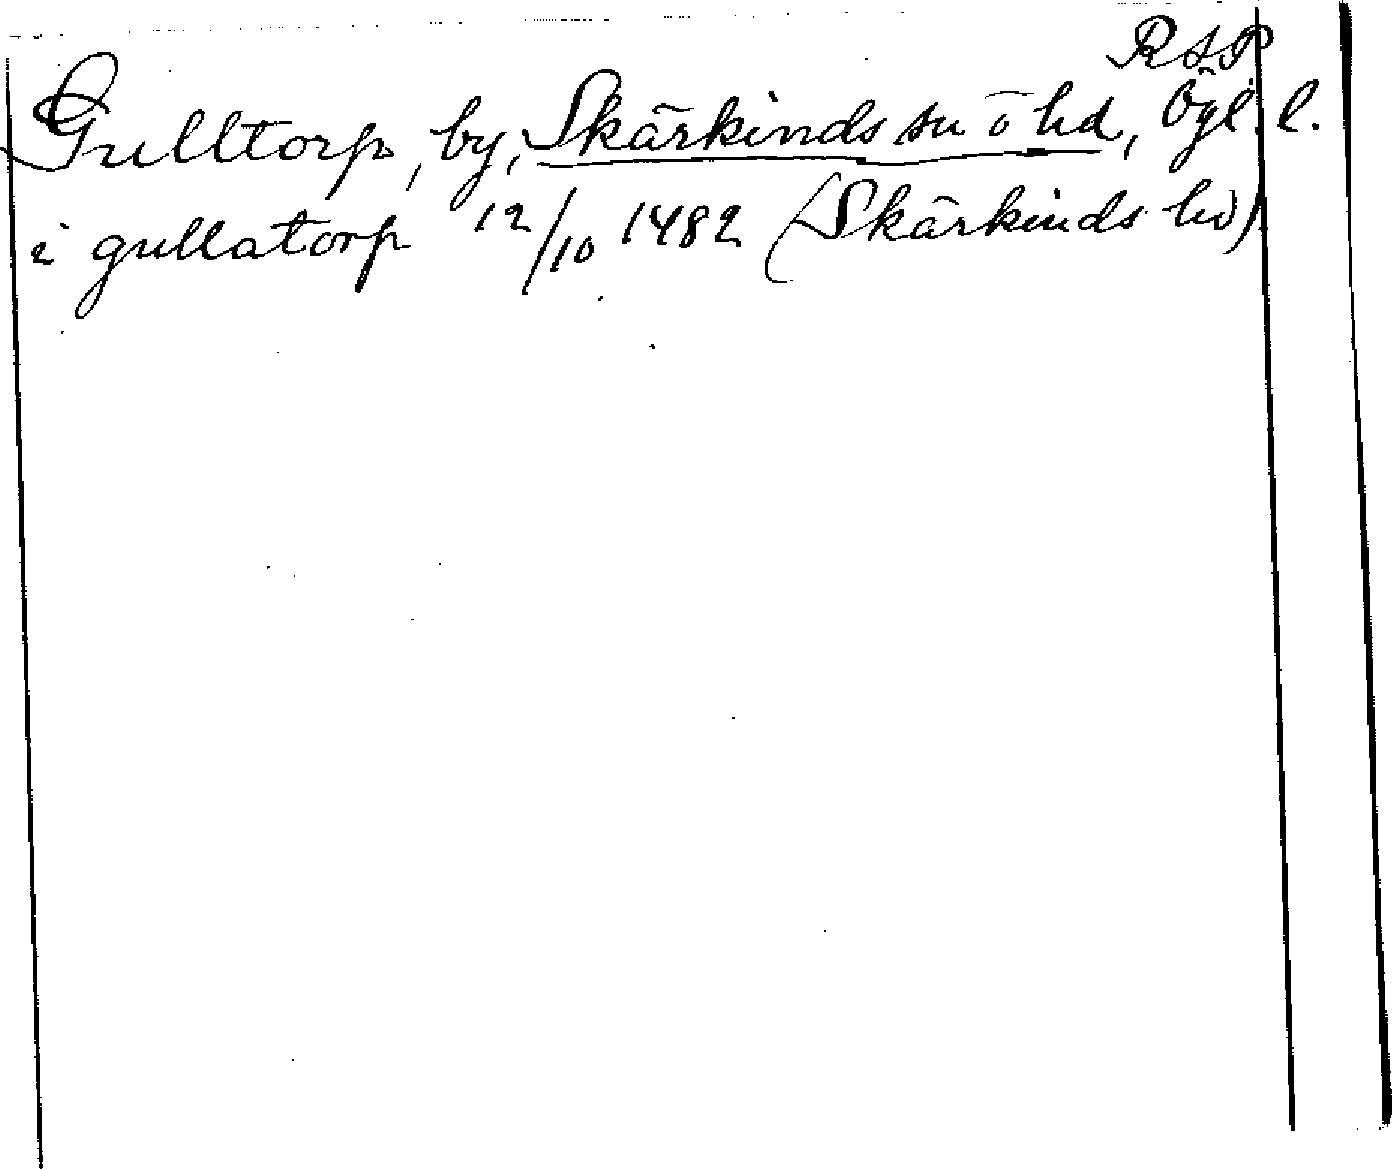 RAP
Gulltorp, by, Skärkinds sn o hd, Ögl. l.
i gullatorp 12/10 1482 (Skärkinds hd)